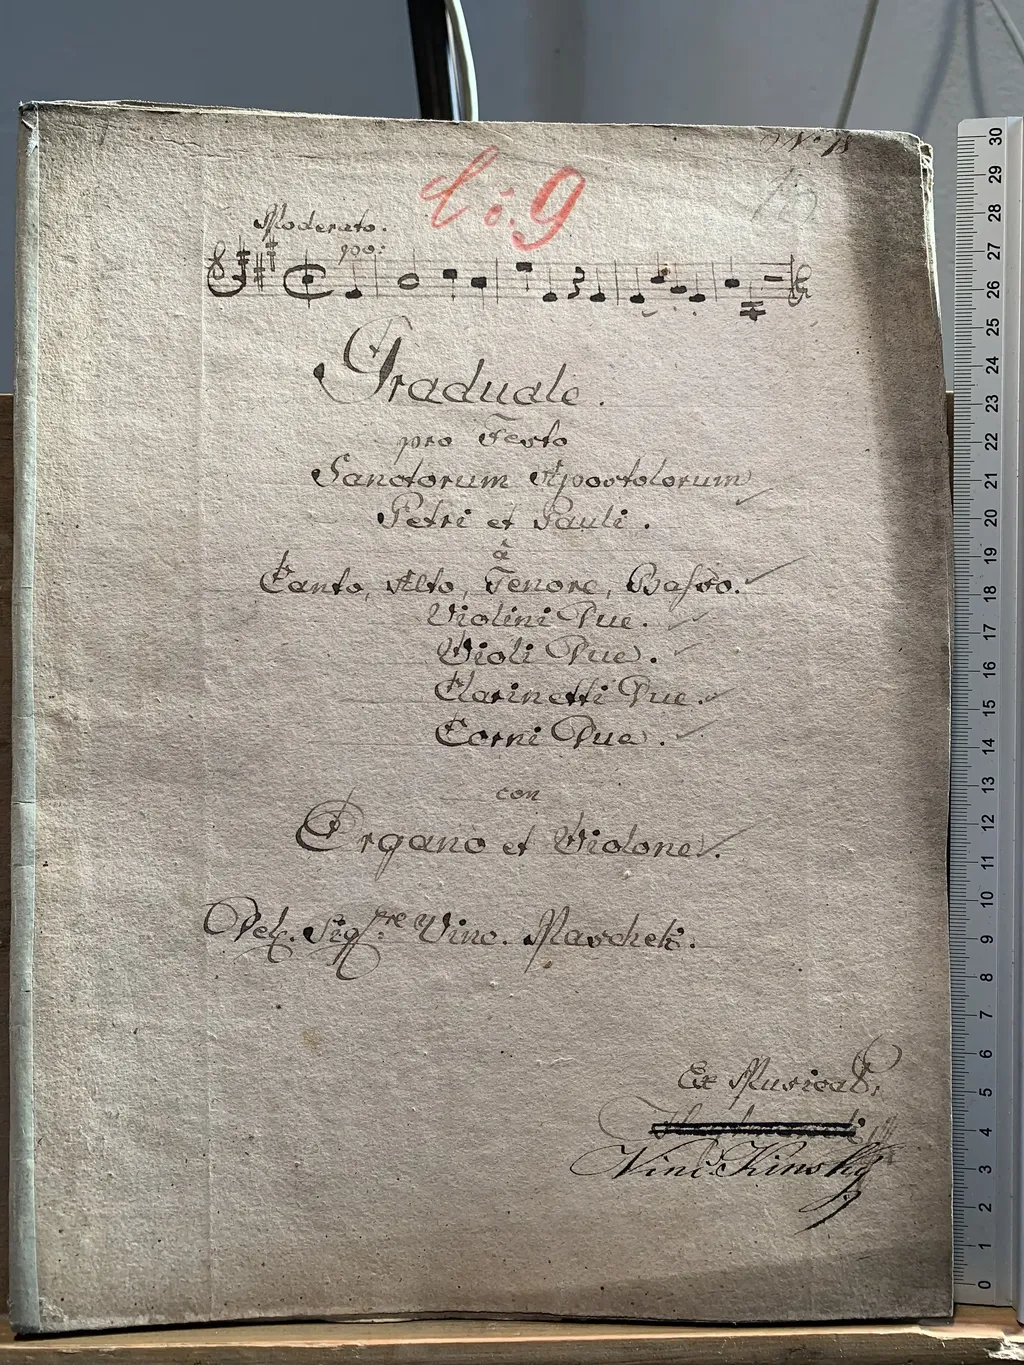 No 18
č. 9
Moderato.
po:
Graduale.
pro Festo
Sanctorum Apostolorum
Petri et Pauli.
à
Canto, Alto, Tenore, Basso.
Violini Due.
Violi Due.
Clarinetti Due.
Corni Due.
con
Organo et Violone.
Del. Sigre Vinc. Maschek.
Ex Musical:
Vinc. Kinsky
30
29
28
27
26
25
24
23
22
21
20
19
18
17
16
15
14
13
12
11
10
9
8
7
6
5
4
3
2
1
0